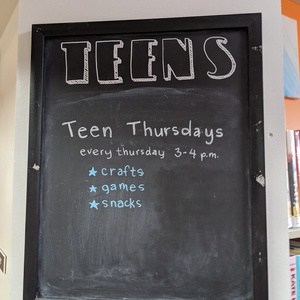 TEENS
Teen Thursdays
every thursday 3-4 p.m.
★ crafts
★ games
★ snacks